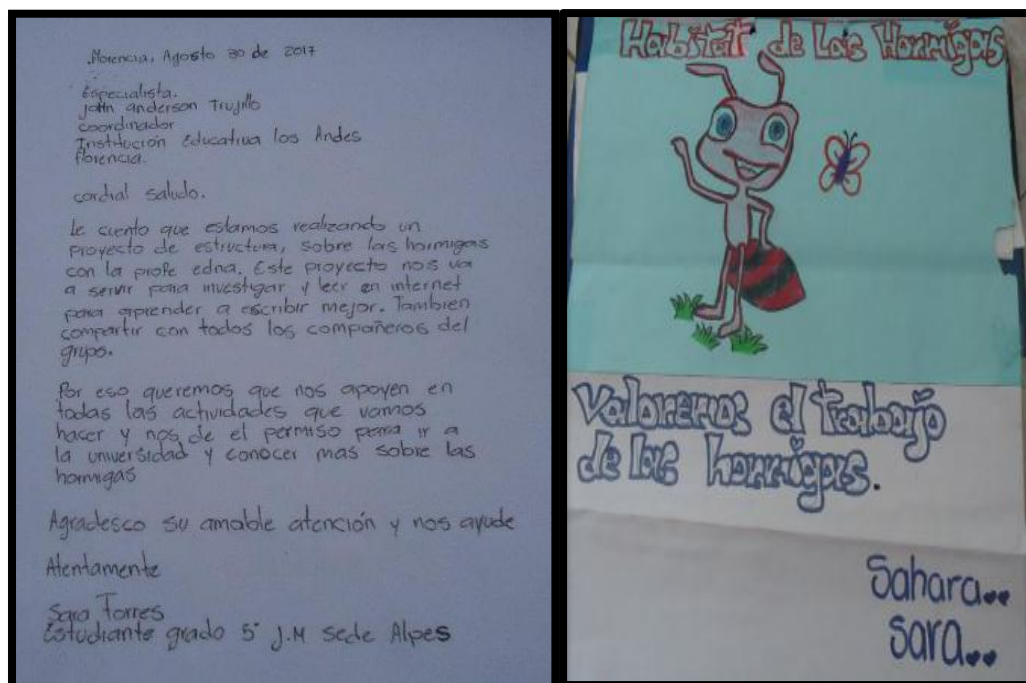 Florencia, Agosto 30 de 2017
Especialista.
john anderson Trujillo
coordinador
Institución Educativa los Andes
florencia.
cordial saludo.
le cuento que estamos realizando un
proyecto de estructura, sobre las hormigas
con la profe edna. Este proyecto nos va
a servir para investigar y leer en internet
para aprender a escribir mejor. Tambien
compartir con todos los compañeros del
grupo.
Por eso queremos que nos apoyen en
todas las actividades que vamos
hacer y nos de el permiso para ir a
la universidad y conocer mas sobre las
hormigas
Agradesco su amable atención y nos ayude
Atentamente
Sara Torres
Estudiante grado 5° J.M sede Alpes
Habitat de Las Hormigas
Valoremos el trabajo
de las hormigas.
Sahara..
sara..